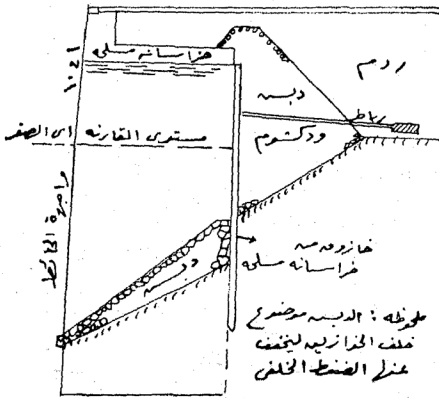 خراسانه مسلحه
ردم
١٠٢١
دبش
رباط
ودكشوم
مستوى المقارنه اى الصفر
واجهة الحائط
دبش
خازوق من
خراسانه مسلحه
ملحوظه : الدبش موضوع
خلف الخوازيق ليخفف
عنها الضغط الخلفى